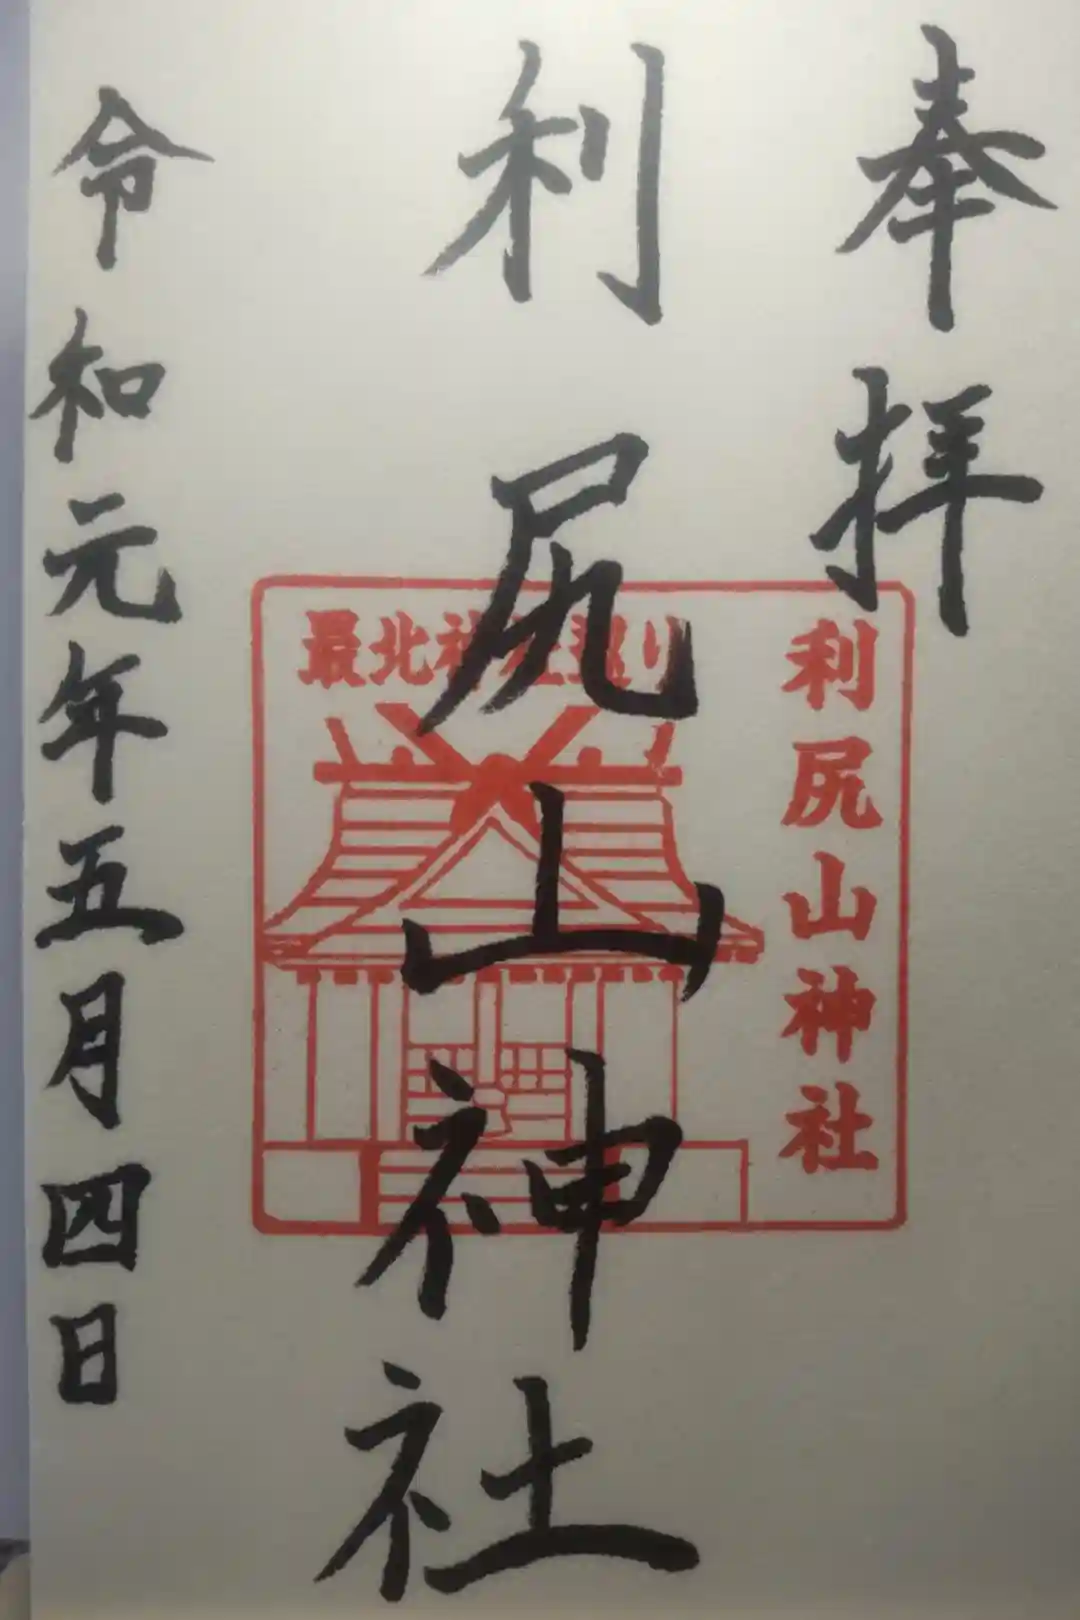 奉拝
利尻山神社
令和元年五月四日
最北神社巡り
利尻山神社